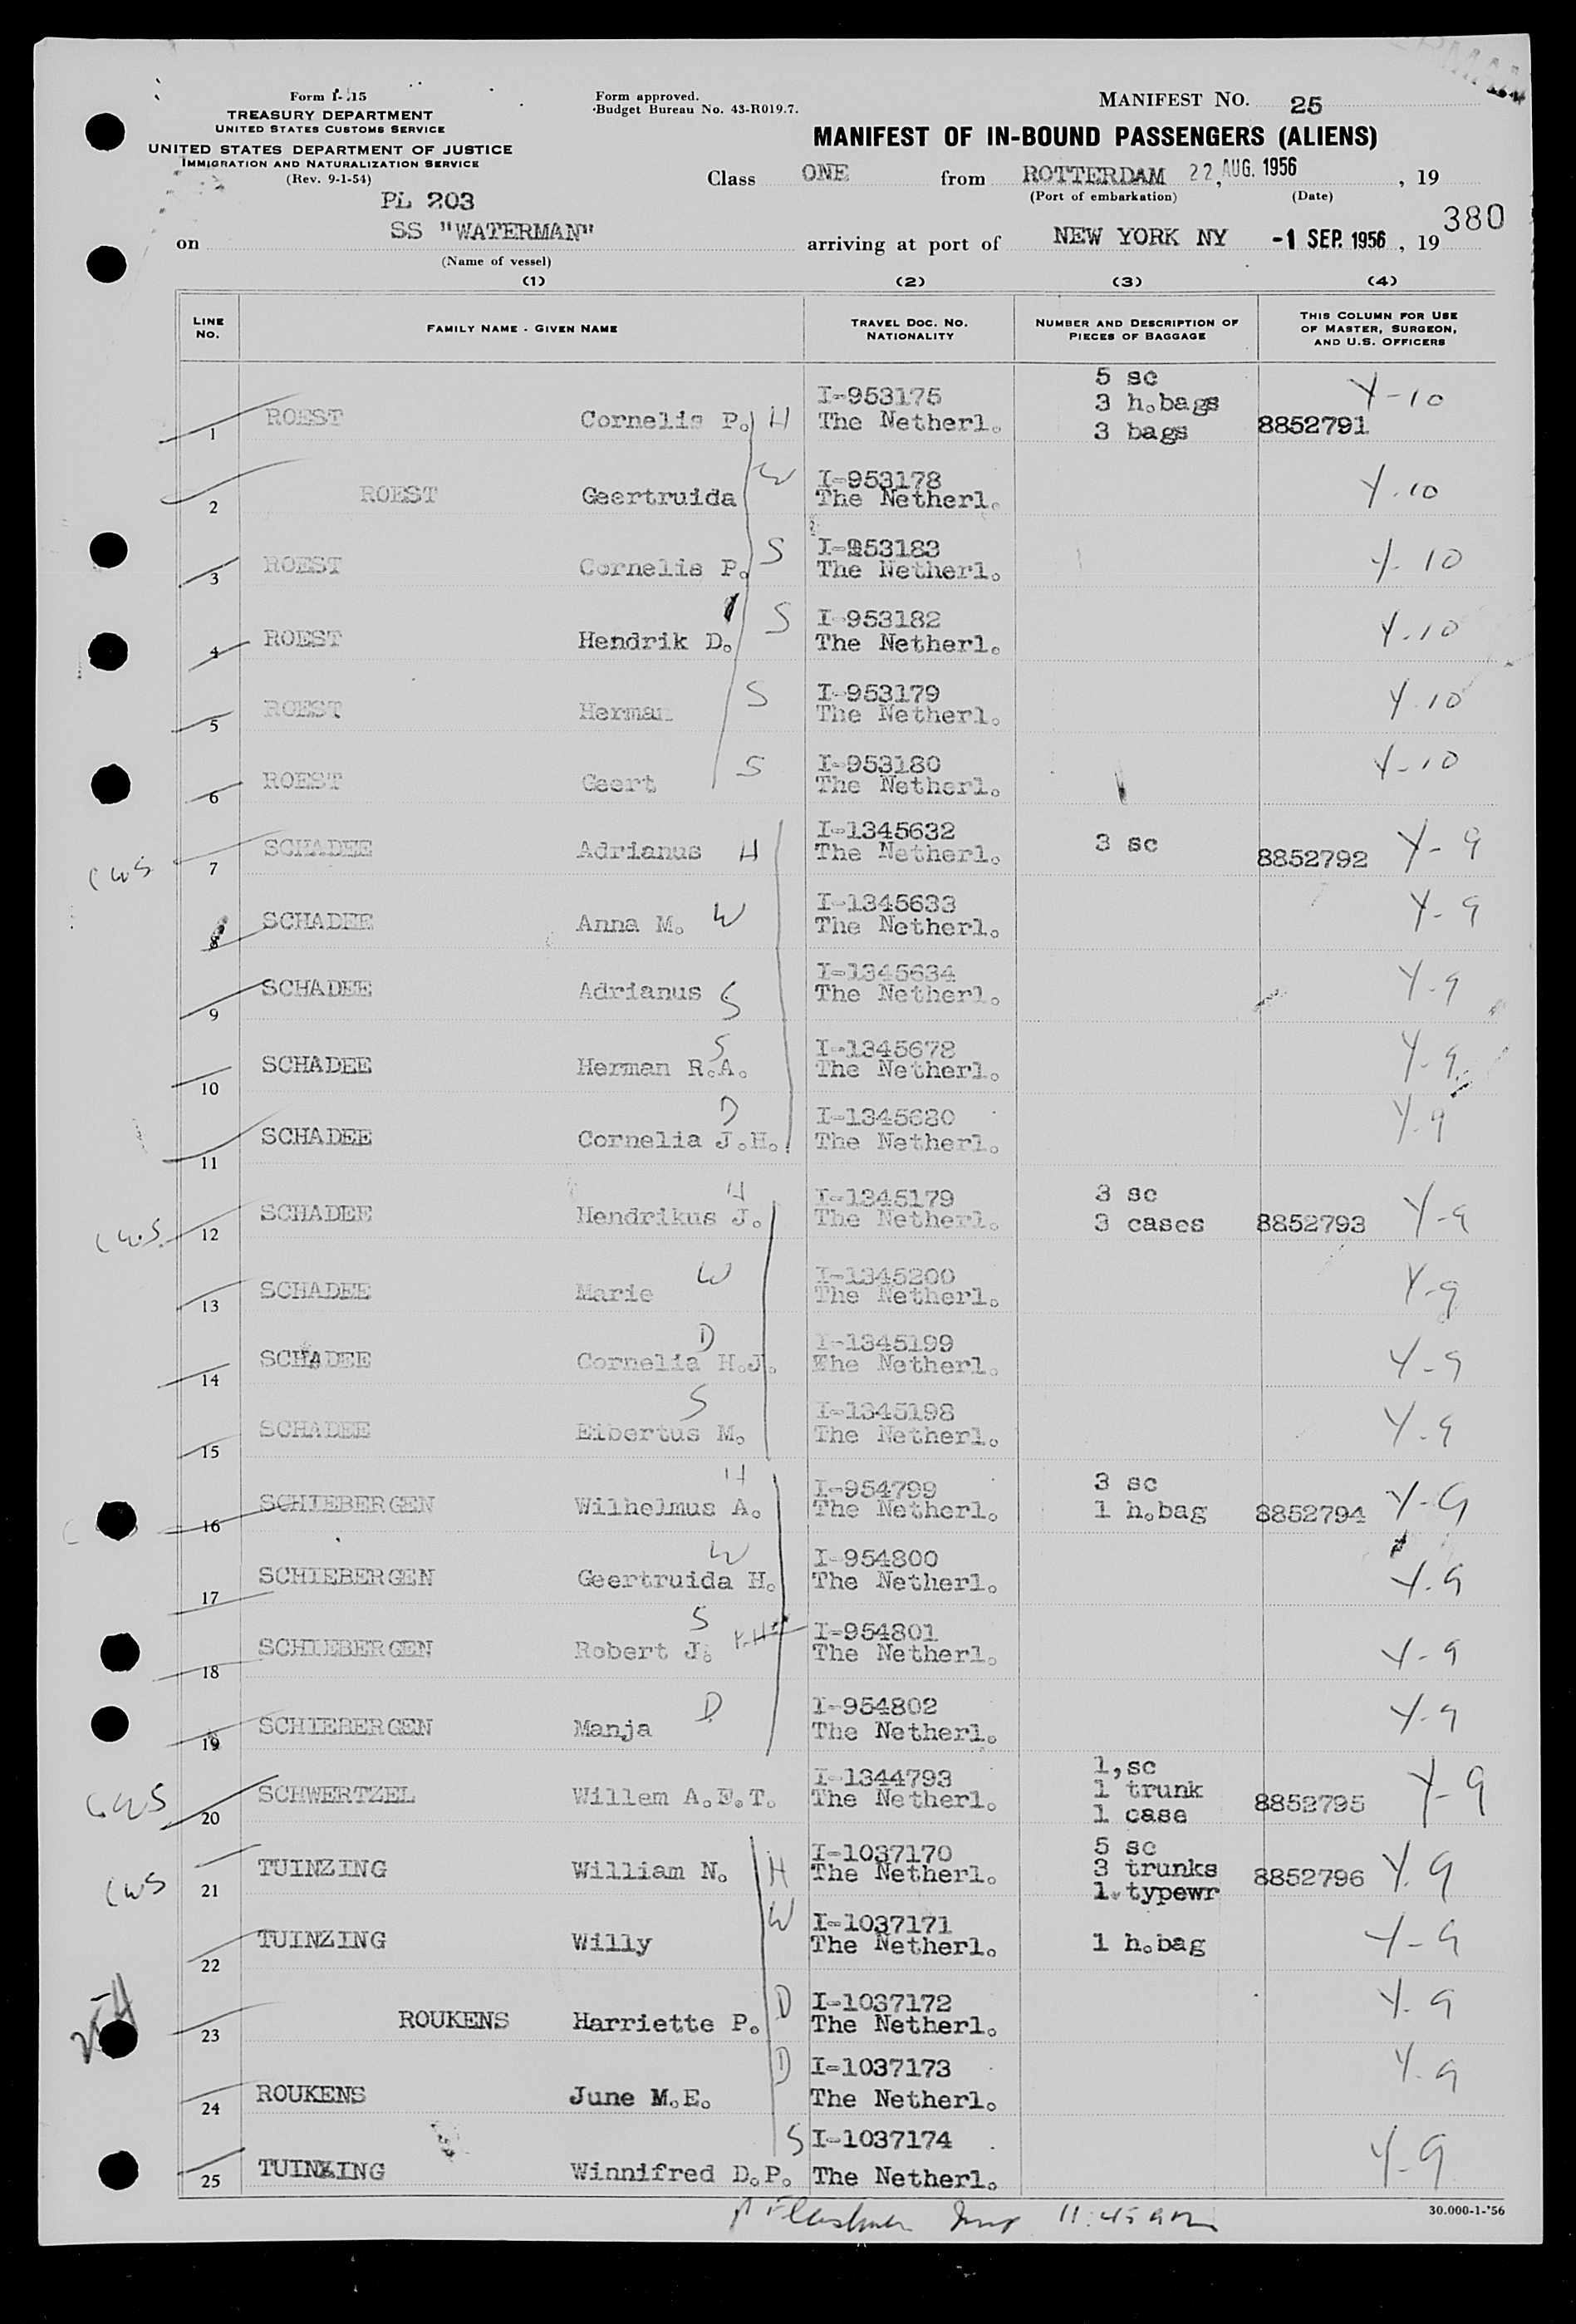 Form I-415
TREASURY DEPARTMENT
UNITED STATES CUSTOMS SERVICE
UNITED STATES DEPARTMENT OF JUSTICE
IMMIGRATION AND NATURALIZATION SERVICE
(Rev. 9-1-54)
Form approved.
Budget Bureau No. 43-R019.7.
MANIFEST NO. 25
MANIFEST OF IN-BOUND PASSENGERS (ALIENS)
Class ONE from ROTTERDAM 22, AUG. 1956, 19
(Port of embarkation) (Date)
PL 203
380
on SS "WATERMAN" arriving at port of NEW YORK NY -1 SEP. 1956, 19
(Name of vessel)
(1) (2) (3) (4)
LINE NO. FAMILY NAME - GIVEN NAME TRAVEL DOC. NO. NATIONALITY NUMBER AND DESCRIPTION OF PIECES OF BAGGAGE THIS COLUMN FOR USE OF MASTER, SURGEON, AND U.S. OFFICERS
1 ROEST Cornelis P. H I-953175 The Netherl. 5 sc 3 h.bags 3 bags 8852791 Y-10
2 ROEST Geertruida W I-953178 The Netherl. Y-10
3 ROEST Cornelis P. S I-953183 The Netherl. Y-10
4 ROEST Hendrik D. S I-953182 The Netherl. Y-10
5 ROEST Herman S I-953179 The Netherl. Y-10
6 ROEST Geert S I-953180 The Netherl. Y-10
CWS 7 SCHADEE Adrianus H I-1345632 The Netherl. 3 sc 8852792 Y-9
8 SCHADEE Anna M. W I-1345633 The Netherl. Y-9
9 SCHADEE Adrianus S I-1345634 The Netherl. Y-9
10 SCHADEE Herman R.A. S I-1345678 The Netherl. Y-9
11 SCHADEE Cornelia J.H. D I-1345680 The Netherl. Y-9
CWS 12 SCHADEE Hendrikus J. H I-1345179 The Netherl. 3 sc 3 cases 8852793 Y-9
13 SCHADEE Marie W I-1345200 The Netherl. Y-9
14 SCHADEE Cornelia H.J. D I-1345199 The Netherl. Y-9
15 SCHADEE Eibertus M. S I-1345198 The Netherl. Y-9
16 SCHIEBERGEN Wilhelmus A. H I-954799 The Netherl. 3 sc 1 h.bag 8852794 Y-9
17 SCHIEBERGEN Geertruida H. W I-954800 The Netherl. Y-9
18 SCHIEBERGEN Robert J. S I-954801 The Netherl. Y-9
19 SCHIEBERGEN Manja D I-954802 The Netherl. Y-9
CWS 20 SCHWERTZEL Willem A.F.T. I-1344793 The Netherl. 1,sc 1 trunk 1 case 8852795 Y-9
CWS 21 TUINZING William N. H I-1037170 The Netherl. 5 sc 3 trunks 1 typewr 8852796 Y-9
22 TUINZING Willy W I-1037171 The Netherl. 1 h.bag Y-9
23 ROUKENS Harriette P. D I-1037172 The Netherl. Y-9
24 ROUKENS June M.E. D I-1037173 The Netherl. Y-9
25 TUINZING Winnifred D.P. S I-1037174 The Netherl. Y-9
11:45 am
30.000-1-'56